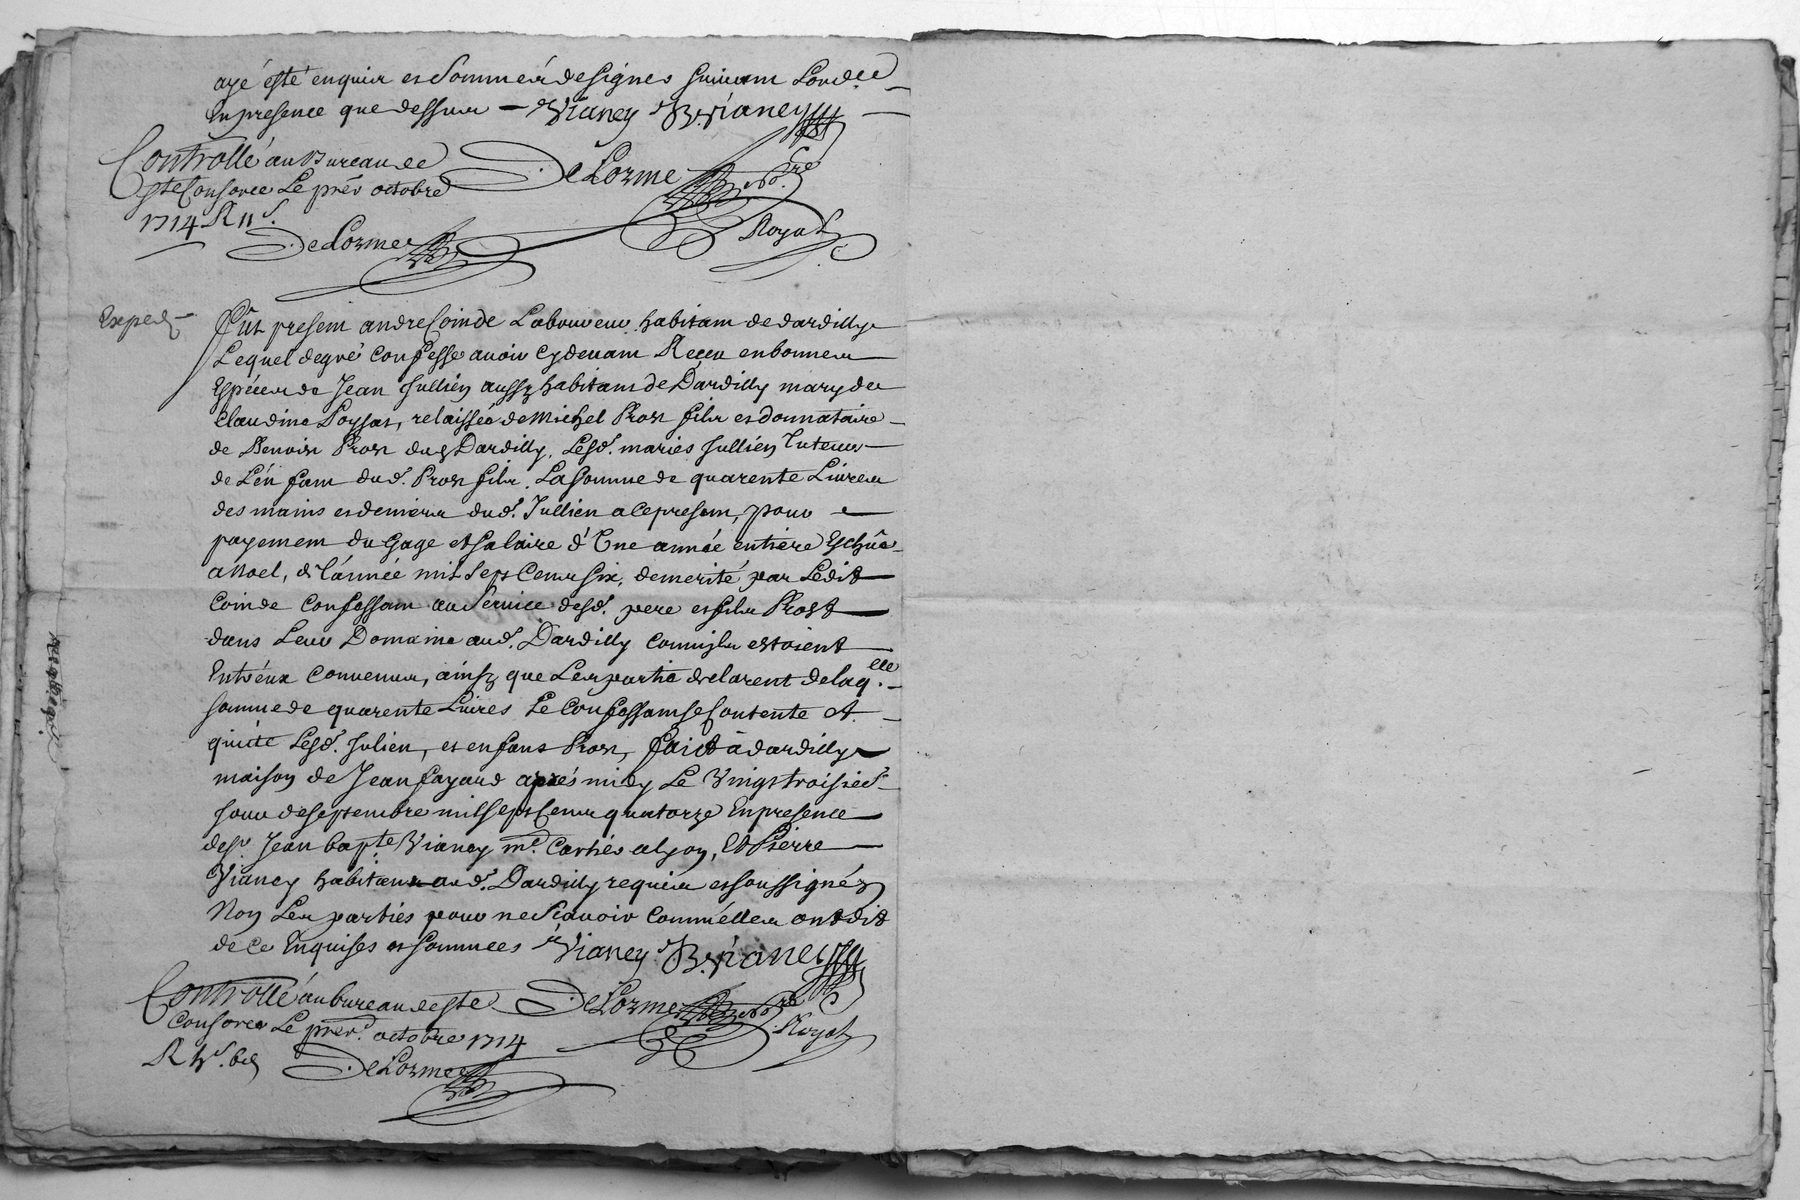 ayé esté enquis et sommé de signer suivant Lordce
En presence que dessus — Vianey B. Vianey
Controllé au Bureau de
ste Consorce Le prér octobre
1714 R 11 s.
DeLorme nore
Royal
DeLorme
Exped
Fût present andre Coinde Laboureur habitant de dardilly
Lequel de gré confesse avoir cydevant Receu en bonnes
Espéces de Jean Jullien aussy habitant de Dardilly mary de
Claudine Poysat, relaissée de Michel Prost fils et donnataire
de Benoist Prost dud Dardilly, Lesd. mariés Jullien Tuteurs
de L'én fant dud. Prost fils. La somme de quarente Livres
des mains et deniers dud. Jullien a ce present, pour
payement du Gage et salaire d'Une année entiere Eschûe
a Noel, de l'année mil sept Cent six, demerité par Ledit
Coinde Confessant au service desd. pere et fils Prost
dans Leur Domaine aud. Dardilly comm'ils estoient
Entréux Convenus, ainsy que Les partie declarent de laqelle
somme de quarente Livres Le Confessant se Contente et
quitte Lesd. Julien, et enfans Prost, faict à dardilly
maison de Jean fayard aprés midy Le Vingt troisiée
Jour de septembre mil sept Cent quatorze En presence
de sr Jean bapte Vianey md. Cartier a Lyon, Et Pierre
Vianey habitant aud. Dardilly requis et soussignéz
Non Les parties pour ne Scavoir Comm'elles ont dit
de ce Enquises et sommees Vianey B. Vianey
Controllé au bureau de ste
Consorce Le prer. octobre 1714
DeLorme nore
Royal
DeLorme